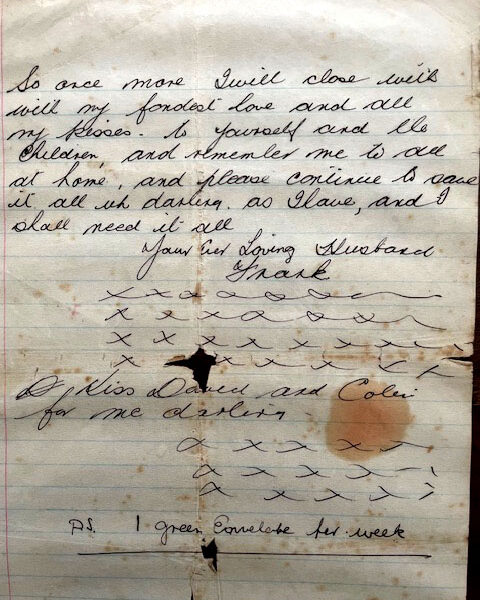 So once more I will close with
with my fondest love and all
my kisses. to yourself and the
Children, and remember me to all
at home, and please continue to save
it all up darling. as I have, and I
shall need it all
Your Ever Loving Husband
Frank
x x x x x x x
x x x x x x x
x x x x x x x x
x x x x x x
Kiss David and Colin
for me darling
x x x x x
x x x x x
x x x x x
P.S. 1 green Envelope per week